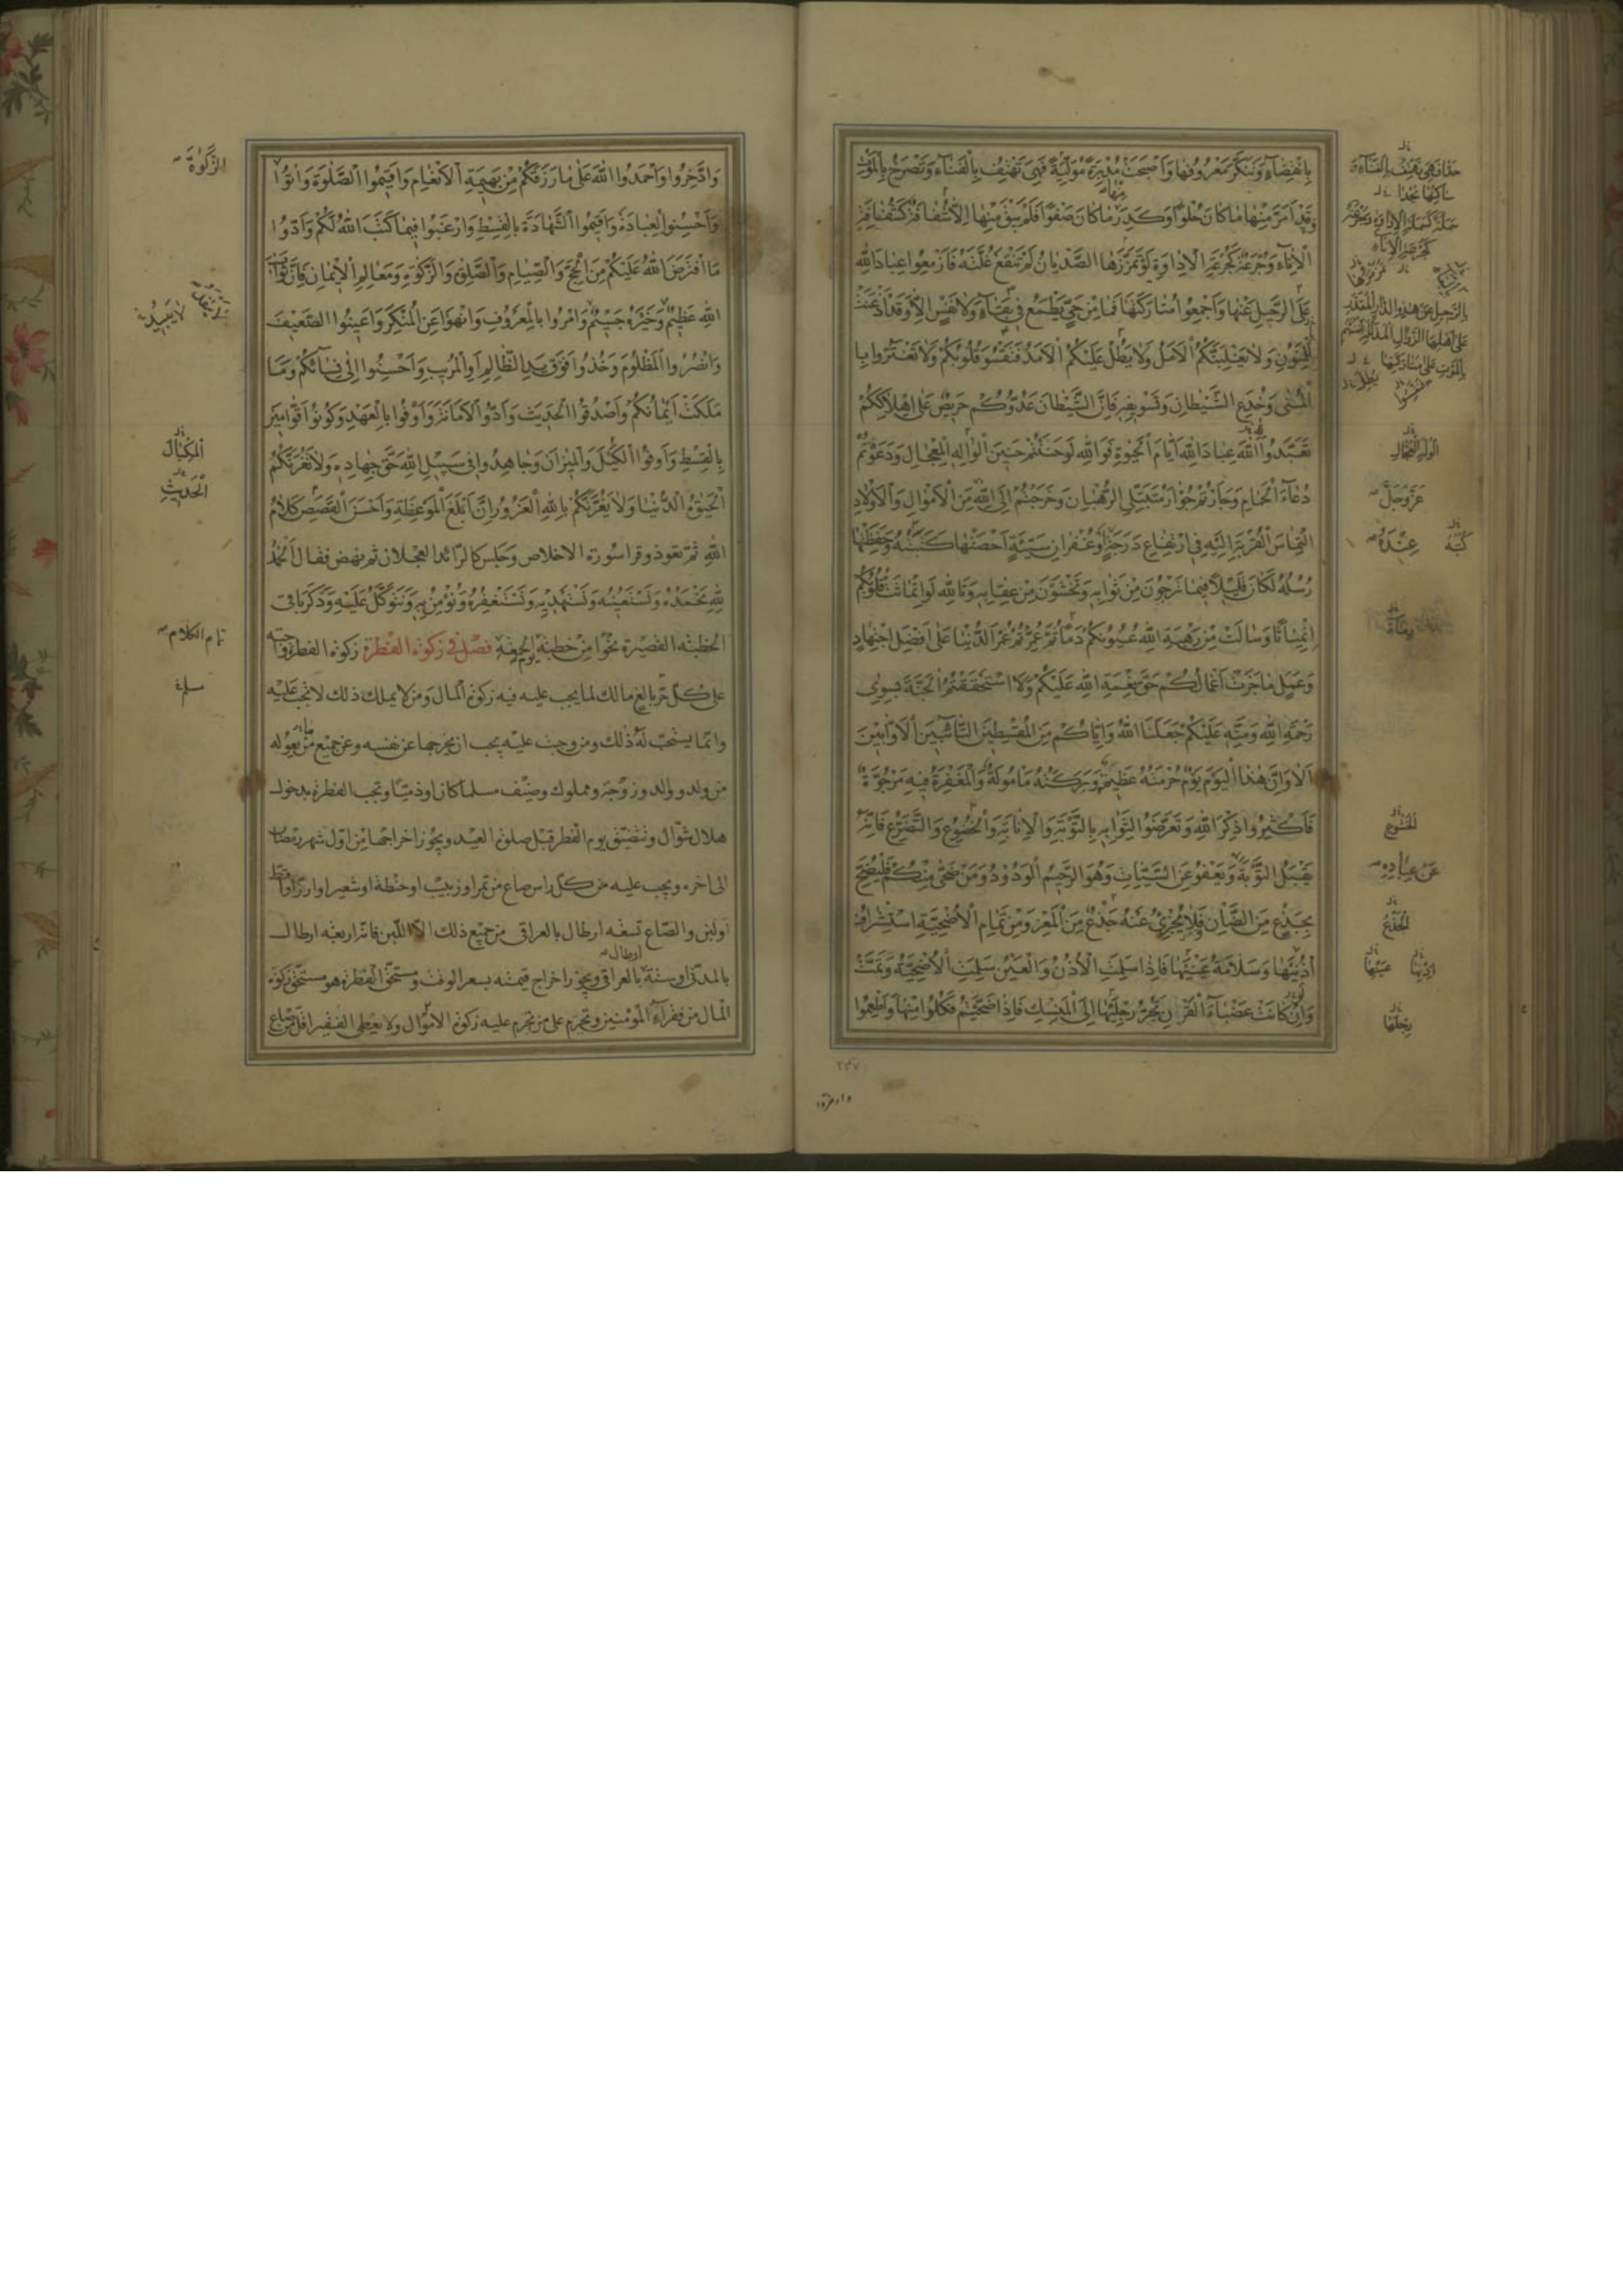 بِانْقِضَاءٍ وَتَنَكَّرَ مَعْرُوفُهَا وَاَصْبَحَتْ مُدْبِرَةً مُوَلِّيَةً فَهِىَ تَهْتِفُ بِالْفَنَاءِ وَتَصْرَخُ بِالْمَوْتِ
وَقَدْ اَمَرَّ مِنْهَا مَا كَانَ حُلْوًا وَكَدِرَ مَا كَانَ صَفْوًا فَلَمْ يَبْقَ مِنْهَا اِلَّا شُفَافَةٌ كَشُفَافَةِ
الْاِنَاءِ وَجُرْعَةٌ كَجُرْعَةِ الْاِدَاوَةِ لَوْ تَمَزَّزَهَا الصَّدْيَانُ لَمْ تَنْقَعْ غُلَّتَهُ فَاَزْمِعُوا عِبَادَ اللهِ
عَلَى الرَّحِيلِ عَنْهَا وَاَجْمِعُوا مُتَارَكَتَهَا فَمَا مِنْ حَىٍّ يَطْمَعُ فِى بَقَاءٍ وَلَا نَفْسٍ اِلَّا وَقَدْ اَذْعَنَتْ
لِلْمَنُونِ وَلَا يَغْلِبَنَّكُمُ الْاَمَلُ وَلَا يَطُلْ عَلَيْكُمُ الْاَمَدُ فَتَقْسُوَ قُلُوبُكُمْ وَلَا تَغْتَرُّوا بِا
لْمُنٰى وَخُدَعِ الشَّيْطَانِ وَتَسْوِيفِهِ فَاِنَّ الشَّيْطَانَ عَدُوُّكُمْ حَرِيصٌ عَلٰى اِهْلَاكِكُمْ
تَعَبَّدُوا لِلّٰهِ عِبَادَ اللهِ اَيَّامَ الْحَيٰوةِ فَوَاللهِ لَوْ حَنَنْتُمْ حَنِينَ الْوَالِهِ الْمِعْجَالِ وَدَعَوْتُمْ
دُعَاءَ الْحَمَامِ وَجَاَرْتُمْ جُؤَارَ مُتَبَتِّلِى الرُّهْبَانِ وَخَرَجْتُمْ اِلَى اللهِ مِنَ الْاَمْوَالِ وَالْاَوْلَادِ
الْتِمَاسَ الْقُرْبَةِ اِلَيْهِ فِى ارْتِفَاعِ دَرَجَةٍ اَوْ غُفْرَانِ سَيِّئَةٍ اَحْصَتْهَا كَتَبَتُهُ وَحَفِظَتْهَا
رُسُلُهُ لَكَانَ قَلِيلًا فِيمَا تَرْجُونَ مِنْ ثَوَابِهِ وَتَخْشَوْنَ مِنْ عِقَابِهِ وَتَاللهِ لَوِ انْمَاثَتْ قُلُوبُكُمْ
انْمِيَاثًا وَسَالَتْ مِنْ رَهْبَةِ اللهِ عُيُونُكُمْ دَمًا ثُمَّ عُمِّرْتُمْ عُمْرَ الدُّنْيَا عَلٰى اَفْضَلِ اجْتِهَادٍ
وَعَمَلٍ مَا جَزَتْ اَعْمَالُكُمْ حَقَّ نِعْمَةِ اللهِ عَلَيْكُمْ وَلَا اسْتَحْقَقْتُمُ الْجَنَّةَ بِسِوٰى
رَحْمَةِ اللهِ وَمَنِّهِ عَلَيْكُمْ جَعَلَنَا اللهُ وَاِيَّاكُمْ مِنَ الْمُقْسِطِينَ التَّائِبِينَ الْاَوَّابِينَ
اَلَا وَاِنَّ هٰذَا الْيَوْمَ يَوْمٌ حُرْمَتُهُ عَظِيمَةٌ وَبَرَكَتُهُ مَأْمُولَةٌ وَالْمَغْفِرَةُ فِيهِ مَرْجُوَّةٌ
فَاَكْثِرُوا ذِكْرَ اللهِ وَتَعَرَّضُوا لِثَوَابِهِ بِالتَّوْبَةِ وَالْاِنَابَةِ وَالْخُضُوعِ وَالتَّضَرُّعِ فَاِنَّهُ
يَقْبَلُ التَّوْبَةَ وَيَعْفُو عَنِ السَّيِّئَاتِ وَهُوَ الرَّحِيمُ الْوَدُودُ وَمَنْ ضَحّٰى مِنْكُمْ فَلْيُضَحِّ
بِجَذَعٍ مِنَ الضَّأْنِ وَلَا يُجْزِئُ عَنْهُ جَذَعٌ مِنَ الْمَعْزِ وَمِنْ تَمَامِ الْاُضْحِيَّةِ اسْتِشْرَافُ
اُذُنِهَا وَسَلَامَةُ عَيْنِهَا فَاِذَا سَلِمَتِ الْاُذُنُ وَالْعَيْنُ سَلِمَتِ الْاُضْحِيَّةُ وَتَمَّتْ
وَاِنْ كَانَتْ عَضْبَاءَ الْقَرْنِ تَجُرُّ رِجْلَيْهَا اِلَى الْمَنْسِكِ فَاِذَا ضَحَّيْتُمْ فَكُلُوا مِنْهَا وَاَطْعِمُوا
الْوَالِهِ الْعِجَالِ
عَزَّ وَجَلَّ
كُتُبُهُ عِنْدَهُ
الْخُشُوعِ
عَنْ عِبَادِهِ
الْجَذَعُ
اُذُنَيْهَا عَيْنَيْهَا
رِجْلَهَا
٢٤٧
وادخروا
وَادَّخِرُوا وَاحْمَدُوا اللهَ عَلٰى مَا رَزَقَكُمْ مِنْ بَهِيمَةِ الْاَنْعَامِ وَاَقِيمُوا الصَّلٰوةَ وَاٰتُوا
وَاَحْسِنُوا الْعِبَادَةَ وَاَقِيمُوا الشَّهَادَةَ بِالْقِسْطِ وَارْغَبُوا فِيمَا كَتَبَ اللهُ لَكُمْ وَاَدُّوا
مَا افْتَرَضَ اللهُ عَلَيْكُمْ مِنَ الْحَجِّ وَالصِّيَامِ وَالصَّلٰوةِ وَالزَّكٰوةِ وَمَعَالِمِ الْاِيمَانِ فَاِنَّ ثَوَابَ
اللهِ عَظِيمٌ وَخَيْرَهُ جَسِيمٌ وَأْمُرُوا بِالْمَعْرُوفِ وَانْهَوْا عَنِ الْمُنْكَرِ وَاَعِينُوا الضَّعِيفَ
وَانْصُرُوا الْمَظْلُومَ وَخُذُوا فَوْقَ يَدِ الظَّالِمِ اَوِ الْمُرِيبِ وَاَحْسِنُوا اِلٰى نِسَائِكُمْ وَمَا
مَلَكَتْ اَيْمَانُكُمْ وَاصْدُقُوا الْحَدِيثَ وَاَدُّوا الْاَمَانَةَ وَاَوْفُوا بِالْعَهْدِ وَكُونُوا قَوَّامِينَ
بِالْقِسْطِ وَاَوْفُوا الْكَيْلَ وَالْمِيزَانَ وَجَاهِدُوا فِى سَبِيلِ اللهِ حَقَّ جِهَادِهِ وَلَا تَغُرَّنَّكُمُ
الْحَيٰوةُ الدُّنْيَا وَلَا يَغُرَّنَّكُمْ بِاللهِ الْغَرُورُ اِنَّ اَبْلَغَ الْمَوْعِظَةِ وَاَحْسَنَ الْقَصَصِ كَلَامُ
اللهِ ثم تعوذ وقرا سورة الاخلاص وجلس كالرائد العجلان ثم نهض فقال اَلْحَمْدُ
لِلّٰهِ نَحْمَدُهُ وَنَسْتَعِينُهُ وَنَسْتَهْدِيهِ وَنَسْتَغْفِرُهُ وَنُؤْمِنُ بِهِ وَنَتَوَكَّلُ عَلَيْهِ وَذَكَرَ باقى
الخطبة القصيرة نحوًا من خطبة يوم الجمعة فصل فى زكوة الفطرة زكوة الفطر واجبة
على كلّ حرّ بالغ مالك لما يجب عليه فيه زكوة المال ومن لا يملك ذلك لا تجب عليه
وانّما يستحبّ له ذلك ومن وجبت عليه يجب ان يخرجها عن نفسه وعن جميع من يعوله
من ولد ووالد وزوجة ومملوك وضيف مسلما كان او ذميّا وتجب الفطرة بدخول
هلال شوّال وتتضيّق يوم الفطر قبل صلوة العيد ويجوز اخراجها من اوّل شهر رمضان
الى اخره ويجب عليه عن كلّ راس صاع من تمر او زبيب او حنطة او شعير او ارزّ او اقط
او لبن والصّاع تسعة ارطال بالعراقى من جميع ذلك الّا اللّبن فانّه اربعة ارطال
بالمدنى او ستة ارطال بالعراقى ويجوز اخراج قيمته بسعر الوقت ومستحقّ الفطرة هو مستحقّ زكوة
المال من فقراء المؤمنين وتحرم على من تحرم عليه زكوة الاموال ولا يعطى الفقير اقل من صاع
الزَّكٰوةَ
الْمِكْيَالَ
الْحَدِيثِ
تام الكلام
مسلم